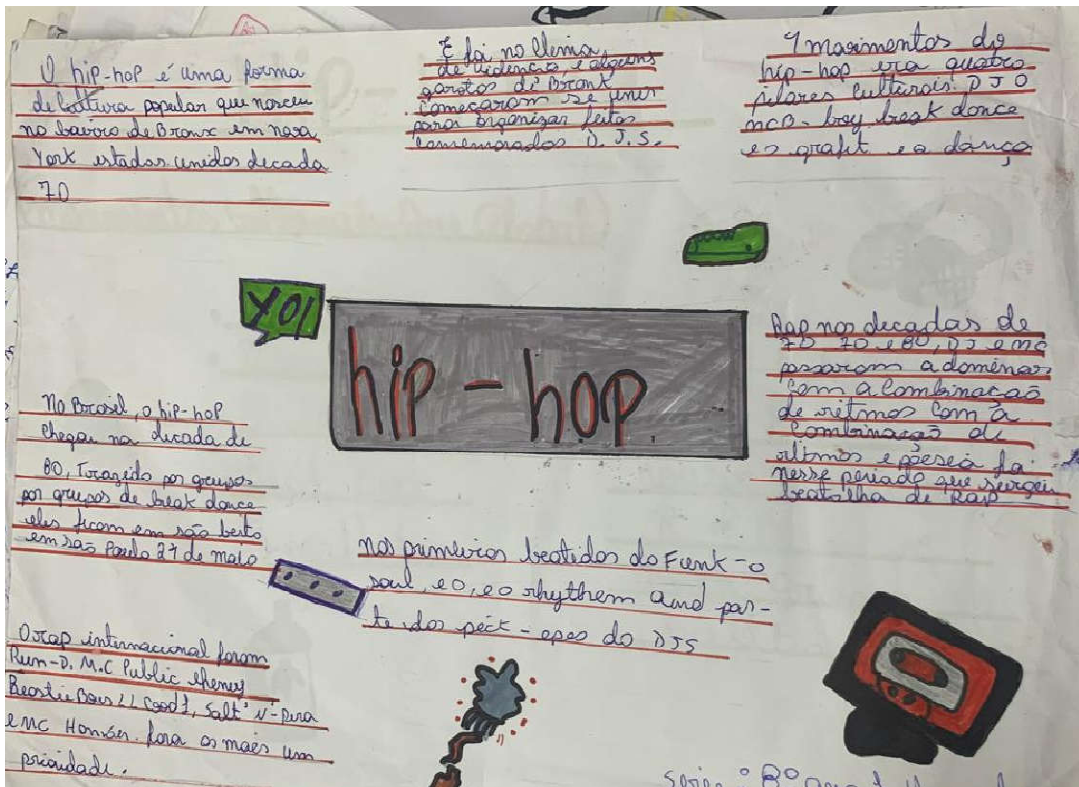 O hip-hop é uma forma
de cultura popular que nasceu
no bairro de Bronx em nova
York estados unidos decada
70
E foi no clima
de videncia e alguns
garotos di Bronk
começaram se unir
para organizar feitas
comemorados D.J.S.
4 marimentos do
hip-hop era quatro
pilares culturais. DJ O
mcO-boy break dance
es grafit e a dança
YO!
hip-hop
Rap nas decadas de
70 70 e 80, DJ e mc
passaram a dominar
com a combinacao
de ritmos com a
combinacao de
ritmos e poesea foi
nesse periado que surgeu
beatalha de Rap
No Brasil, o hip-hop
chegou na decada de
80, Trazido por grupos
por grupos de break dance
eles ficam em são beito
em são Paulo 24 de maio
nos primeiros beatidos do Funk-o
soul, e o, e o rhythem and par-
te dos peck-apes do DJS
O rap internacional foram
Rum-D. M.C Public
Beastie Boys LL Cood J, Salt' N'-Pera
e MC Hommer. fora os maes um
prioridade.
8º ano